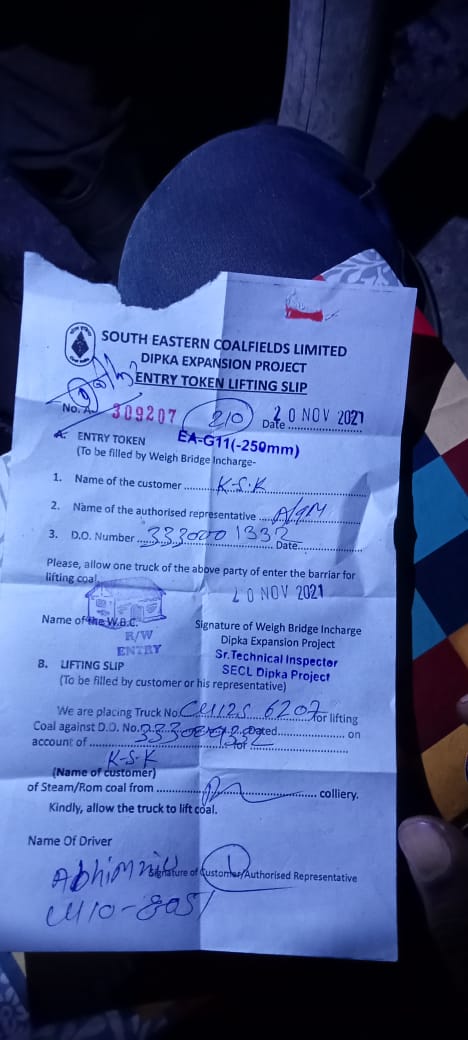 SOUTH EASTERN COALFIELDS LIMITED
DIPKA EXPANSION PROJECT
ENTRY TOKEN LIFTING SLIP
No. A 309207 210 Date 20 NOV 2021
A. ENTRY TOKEN EA-G11(-250mm)
(To be filled by Weigh Bridge Incharge-
1. Name of the customer K-S.K
2. Name of the authorised representative
3. D.O. Number 3330001332 Date
Please, allow one truck of the above party of enter the barriar for
lifting coal
20 NOV 2021
Name of the W.B.C. Signature of Weigh Bridge Incharge
R/W Dipka Expansion Project
ENTRY Sr.Technical Inspector
SECL Dipka Project
B. LIFTING SLIP
(To be filled by customer or his representative)
We are placing Truck No. 6207 for lifting
Coal against D.O. No. Dated on
account of for
K-S-K
(Name of customer)
of Steam/Rom coal from colliery.
Kindly, allow the truck to lift coal.
Name Of Driver
Signature of Customer/Authorised Representative